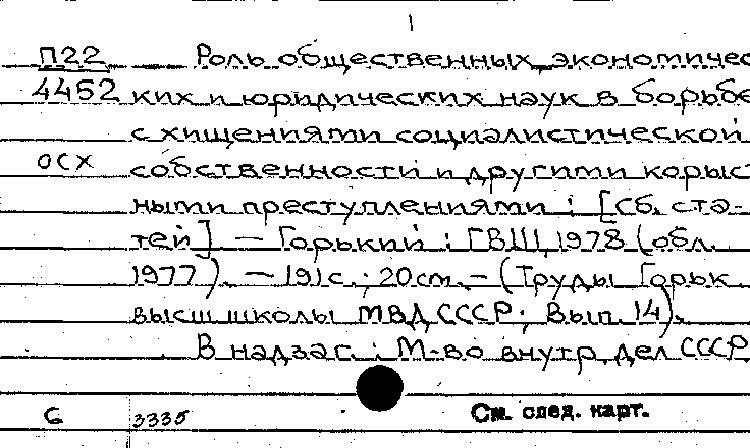 1
П22 Роль общественных, экономичес
4452 ких и юридических наук в борьбе
с хищениями социалистической
осх собственности и другими корыст
ными преступлениями : [Сб. ста-
тей]. — Горький : ГВШ, 1978 (обл.
1977). — 191 с. ; 20 см. — (Труды Горьк.
высш школы МВД СССР; Вып. 14).
В надзаг. : М-во внутр. дел СССР
6 3335 См. след. карт.